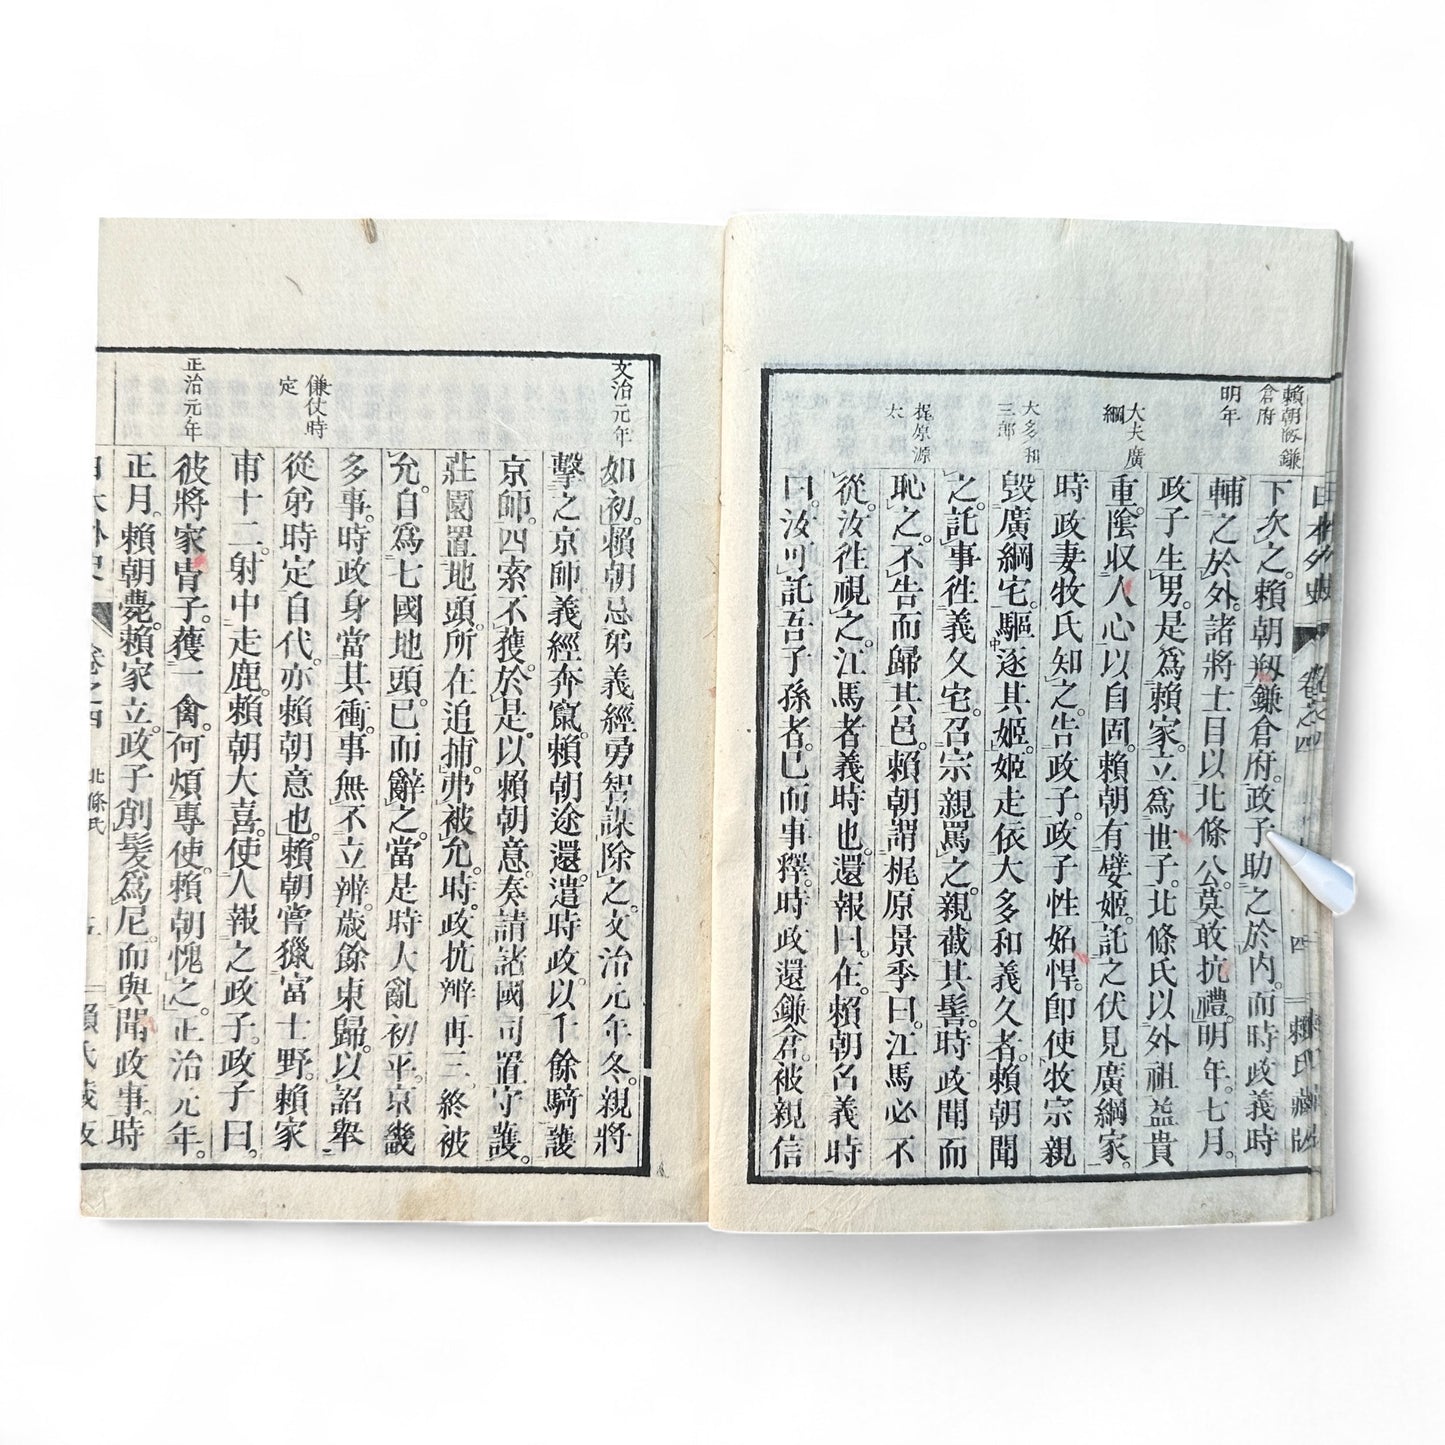 日本外史
卷之四
四
賴氏藏版
賴朝刱鎌
倉府
明年
大夫廣
綱
大多和
三郎
梶原源
太
下次之。賴朝刱鎌倉府。政子助之於內。而時政義時
輔之於外。諸將士目以北條公。莫敢抗禮。明年。七月。
政子生男。是爲賴家。立爲世子。北條氏以外祖益貴
重。陰収人心以自固。賴朝有嬖姬。託之伏見廣綱家。
時政妻牧氏知之。告政子。政子性妬悍。卽使牧宗親
毀廣綱宅。驅逐其姬。姬走依大多和義久者。賴朝聞
之。託事徃義久宅。召宗親罵之。親截其髻。時政聞而
恥之。不告而歸其邑。賴朝謂梶原景季曰。江馬必不
從。汝徃視之。江馬者義時也。還報曰。在。賴朝名義時
曰。汝可託吾子孫者。已而事釋。時政還鎌倉。被親信
文治元年
傔仗時
定
正治元年
如初。賴朝忌弟義經勇智。謀除之。文治元年冬。親將
擊之京師。義經奔竄。賴朝途還。遣時政。以千餘騎護
京師。四索不獲。於是。以賴朝意。奏請諸國司置守護。
莊園置地頭。所在追捕。弗被允。時。政抗辨再三。終被
允。自爲七國地頭。已而辭之。當是時大亂初平。京畿
多事。時政身當其衝。事無不立辨。歲餘東歸。以詔舉
從弟時定自代。亦賴朝意也。賴朝嘗獵富士野。賴家
甫十二。射中走鹿。賴朝大喜。使人報之政子。政子曰。
彼將家冑子。獲一禽。何煩專使。賴朝愧之。正治元年。
正月。賴朝薨。賴家立。政子削髮爲尼。而與聞政事。時
日本外史
卷之四
北條氏
賴氏藏版